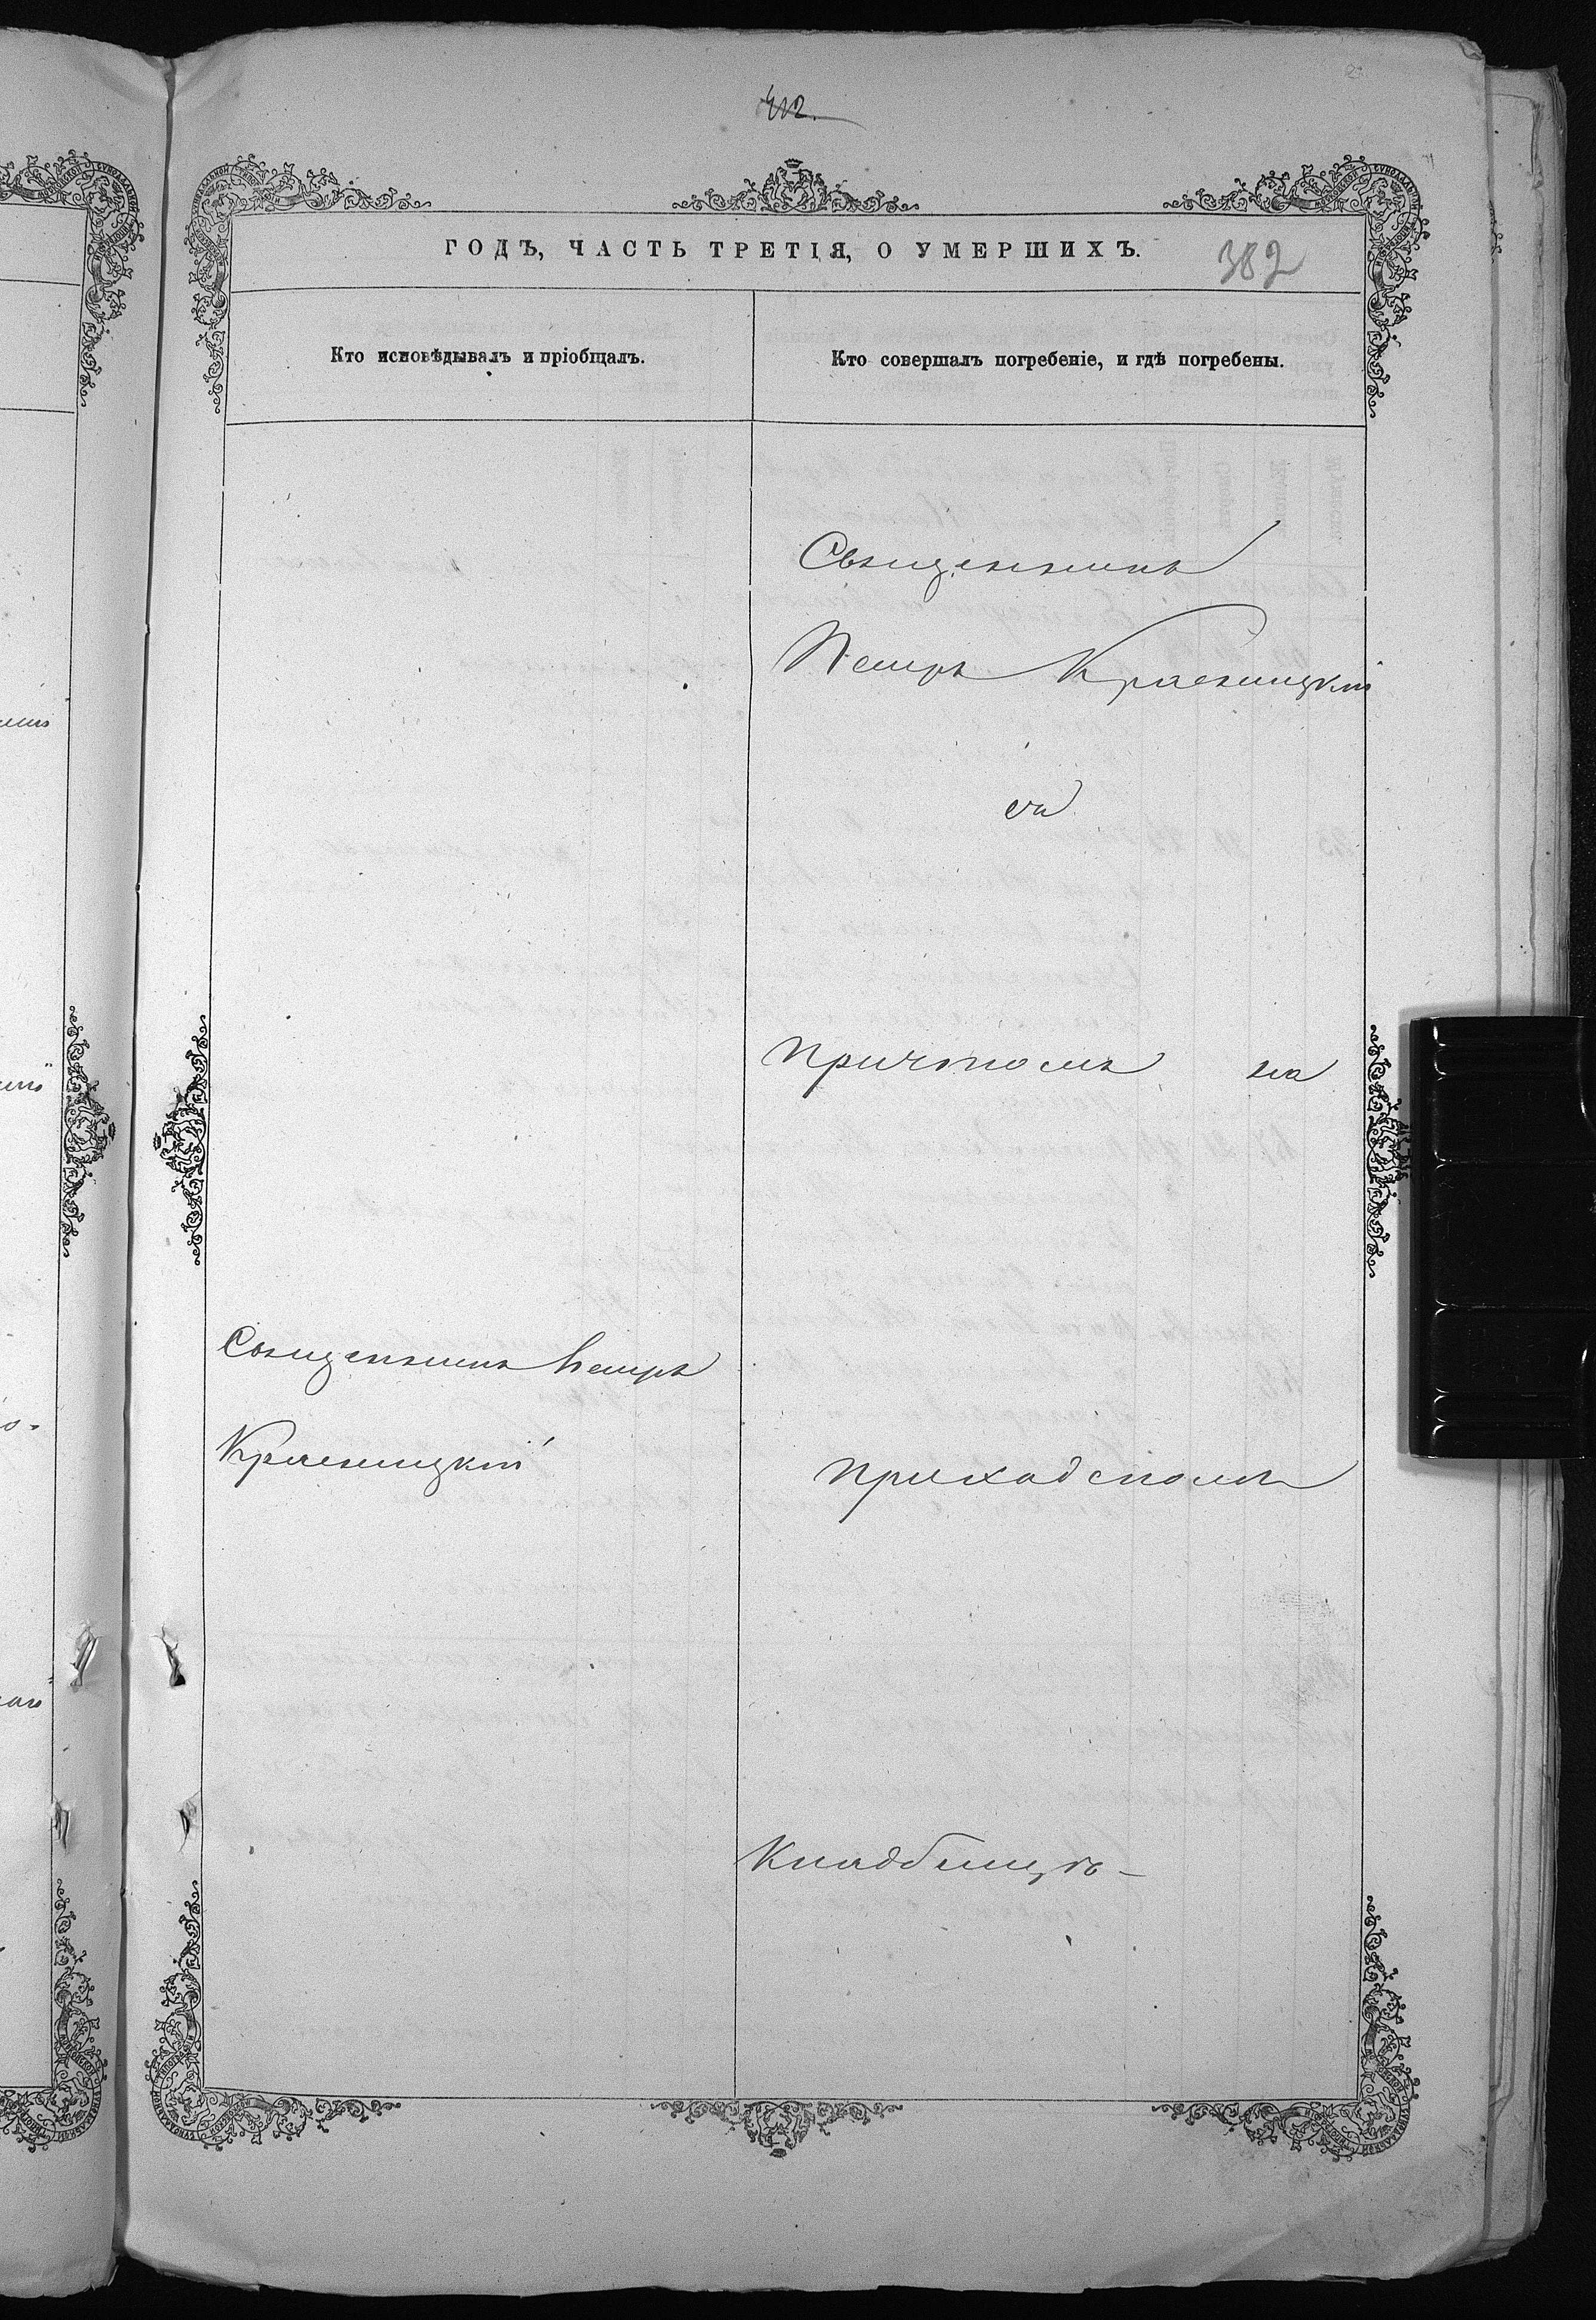 412.
ГОДЪ, ЧАСТЬ ТРЕТІЯ, О УМЕРШИХЪ.
382
Кто исповѣдывалъ и пріобщалъ.
Кто совершалъ погребеніе, и гдѣ погребены.
Священникъ
Петръ Красницкій
съ
причтомъ на
Священникъ Петръ
Красницкій
приходскомъ
Кладбищѣ